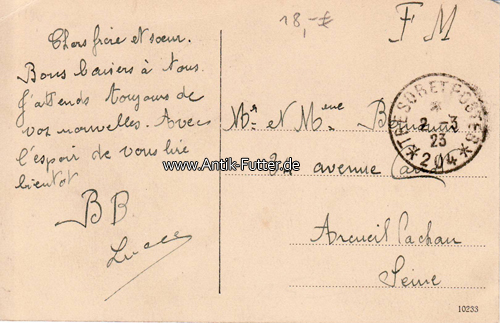 18,-€
F M
Chers frère et sœur.
Bons baisers à tous
J'attends toujours de
vos nouvelles. Avec
l'espoir de vous lire
bientôt
BB
TRESOR ET POSTES
*
2-3
23
* 204 *
Mr et Mme
avenue
Arcueil Cachan
Seine
www.Antik-Futter.de
10233